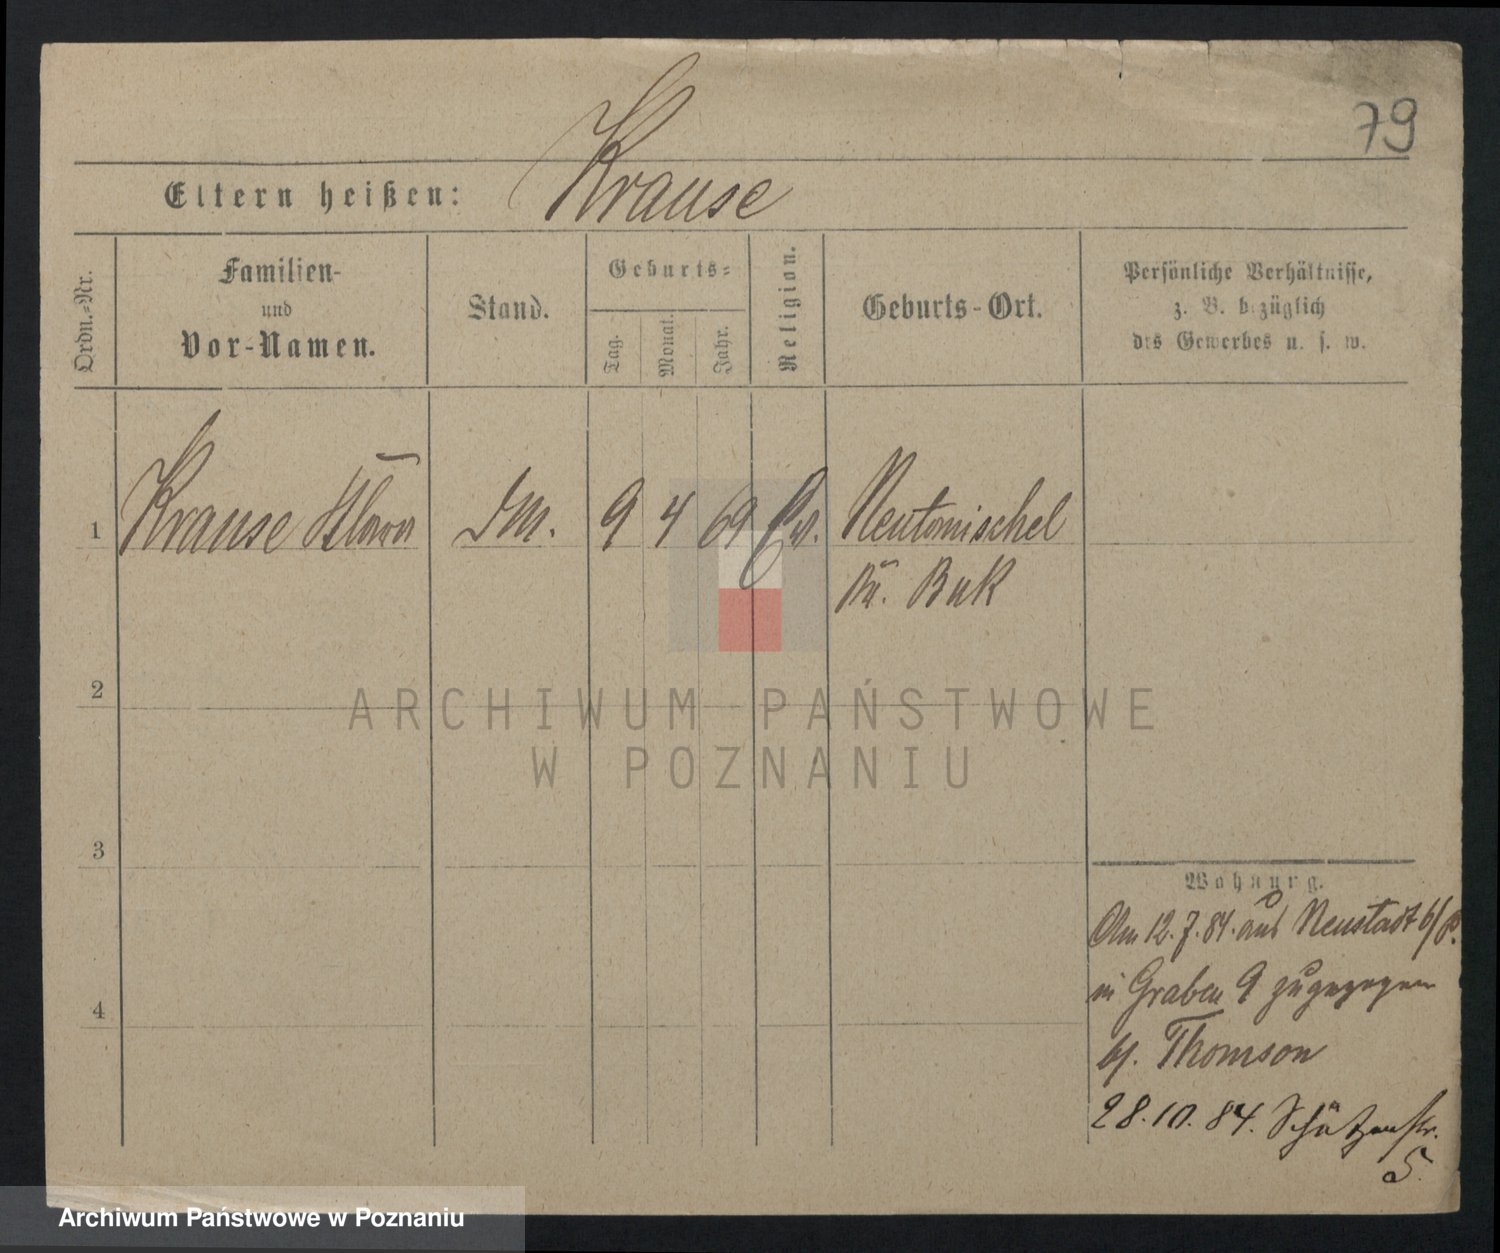 79
Eltern heißen: Krause
Ordn.-Nr.
Familien-
und
Vor-Namen.
Stand.
Geburts-
Tag.
Monat.
Jahr.
Religion.
Geburts-Ort.
Persönliche Verhältnisse,
z. B. bezüglich
des Gewerbes u. s. w.
1 Krause Klara DM. 9 4 69 Ev. Neutomischel
Kr. Buk
2
ARCHIWUM PAŃSTWOWE
W POZNANIU
3
Wohnung.
Am 12.7.84. aus Neustadt b/P.
in Graben 9 zugezogen
4
b/. Thomson
28.10.84. Schützenstr.
5.
Archiwum Państwowe w Poznaniu